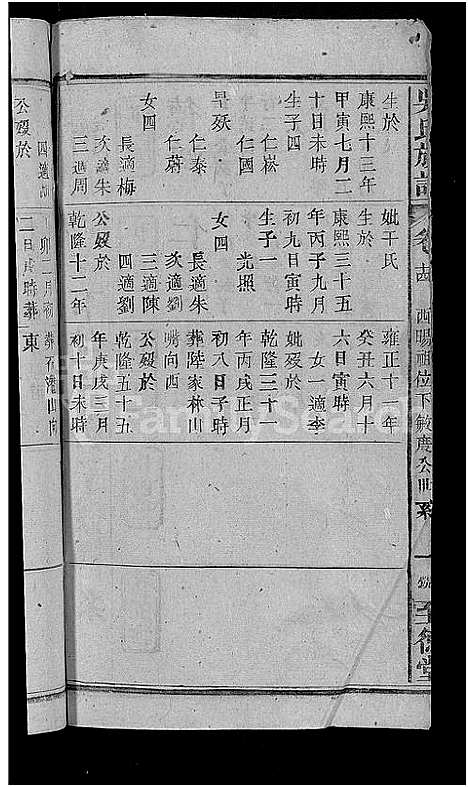 吳氏族譜
西暘祖位下敏慶公世系 一
至德堂
生於
康熙十三年
甲寅七月二
十日未時
生子四
仁崧
仁國
早歿
仁泰
仁蔚
女四
長適梅
次適朱
三適周
妣干氏
生於
康熙三十五
年丙子九月
初九日寅時
生子一
光照
女四
長適朱
次適劉
三適陳
四適劉
公歿於
乾隆十二年
雍正十一年
癸丑六月十
六日寅時
女一適李
妣歿於
乾隆三十一
年丙戌正月
初八日子時
葬陸家林山
嘴向西
公歿於
乾隆五十五
年庚戌三月
初十日未時
四適
公歿於
卯二月初
二日戌時葬
東
FamilySearch